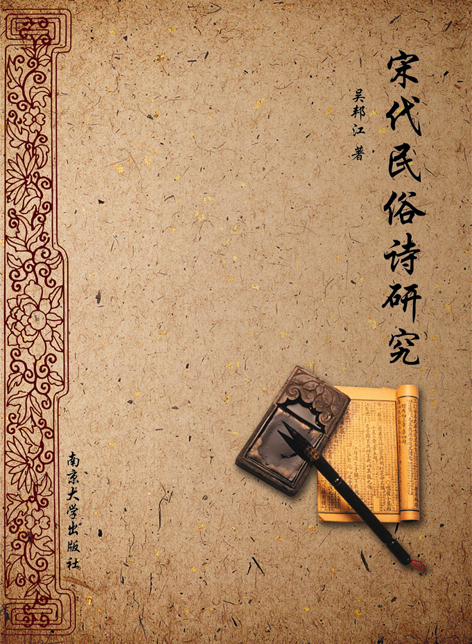 宋代民俗诗研究
吴邦江 著
南京大学出版社